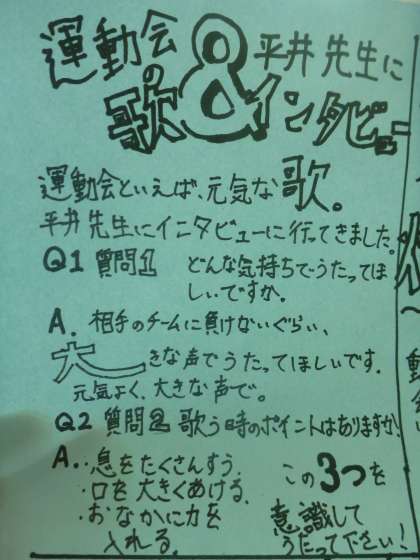 運動会の歌&平井先生にインタビュー
運動会といえば、元気な歌。
平井先生にインタビューに行ってきました。
Q1 質問1 どんな気持ちでうたってほ
しいですか。
A. 相手のチームに負けないぐらい、
大ーきな声でうたってほしいです。
元気よく、大きな声で。
Q2 質問2 歌う時のポイントはありますか。
A. ・息をたくさんすう。
・口を大きくあける。
・おなかに力を
入れる。
この3つを
意識して
うたって下さい!